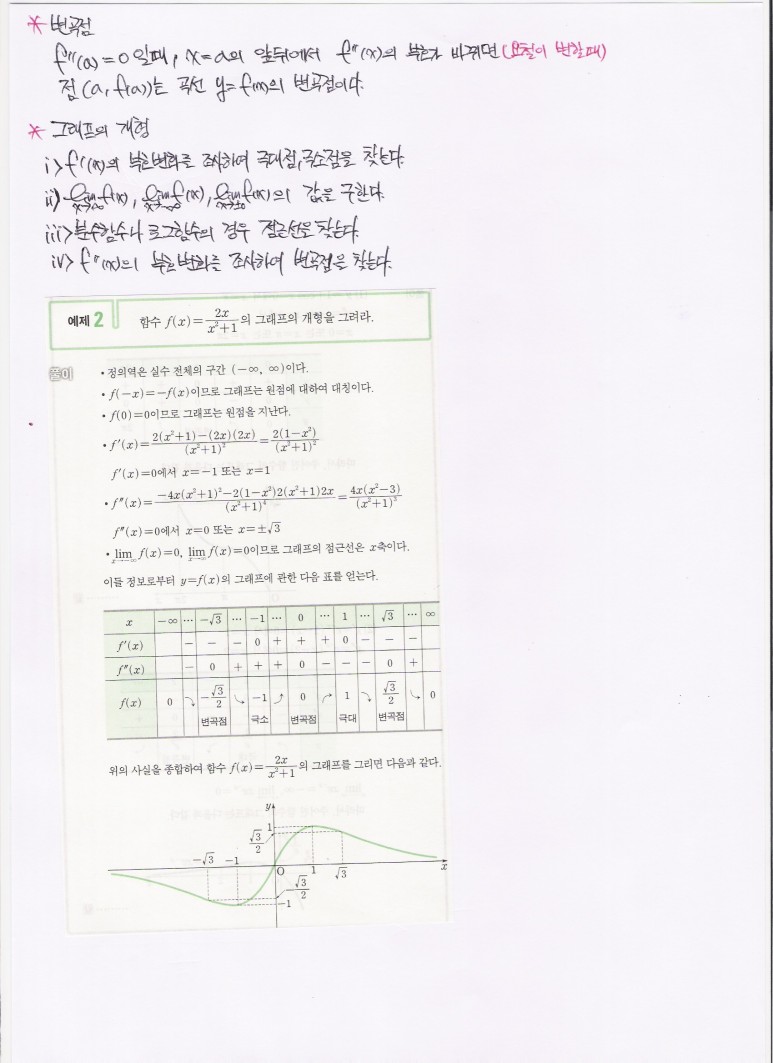 * 변곡점
f''(a)=0일때, x=a의 앞뒤에서 f''(x)의 부호가 바뀌면(요철이 변할때)
점(a, f(a))는 곡선 y=f(x)의 변곡점이다.
* 그래프의 개형
i> f'(x)의 부호변화를 조사하여 극대점, 극소점을 찾는다.
ii) lim f(x), lim f(x), lim f(x)의 값을 구한다.
iii> 분수함수나 로그함수의 경우 점근선을 찾는다.
iv> f''(x)의 부호변화를 조사하여 변곡점을 찾는다.
예제 2 함수 f(x)=2x/(x²+1)의 그래프의 개형을 그려라.
풀이 • 정의역은 실수 전체의 구간 (-∞, ∞)이다.
• f(-x)=-f(x)이므로 그래프는 원점에 대하여 대칭이다.
• f(0)=0이므로 그래프는 원점을 지난다.
• f'(x)=2(x²+1)-(2x)(2x)/(x²+1)²=2(1-x²)/(x²+1)²
f'(x)=0에서 x=-1 또는 x=1
• f''(x)=-4x(x²+1)²-2(1-x²)2(x²+1)2x/(x²+1)⁴=4x(x²-3)/(x²+1)³
f''(x)=0에서 x=0 또는 x=±√3
• lim x→-∞ f(x)=0, lim x→∞ f(x)=0이므로 그래프의 점근선은 x축이다.
이들 정보로부터 y=f(x)의 그래프에 관한 다음 표를 얻는다.
x -∞ … -√3 … -1 … 0 … 1 … √3 … ∞
f'(x) - - - 0 + + + 0 - - -
f''(x) - 0 + + + 0 - - - 0 +
f(x) 0 ⤵ -√3/2 ⤷ -1 ⤴ 0 ↱ 1 ⤵ √3/2 ⤷ 0
변곡점 극소 변곡점 극대 변곡점
위의 사실을 종합하여 함수 f(x)=2x/(x²+1)의 그래프를 그리면 다음과 같다.
y
1
√3/2
-√3 -1
O 1 √3 x
-√3/2
-1